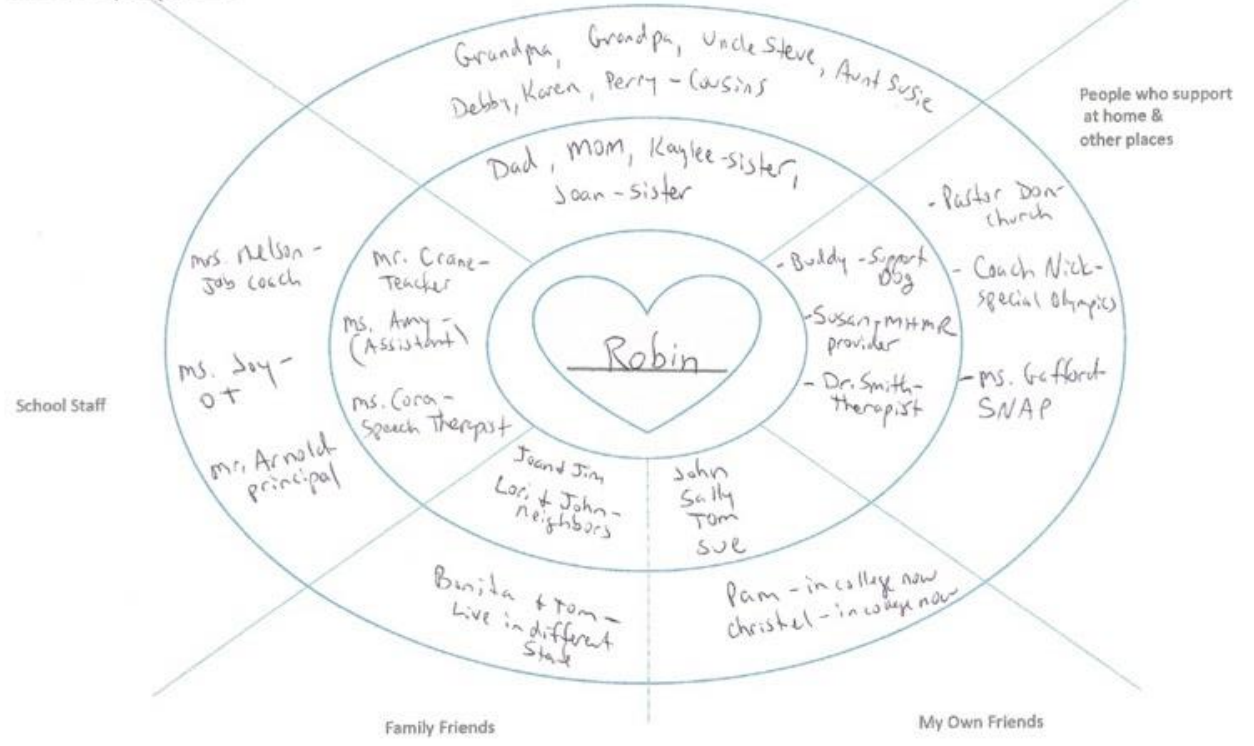 Grandma, Grandpa, Uncle Steve, Aunt Susie
Debby, Karen, Perry - Cousins
People who support
at home &
other places
Dad, mom, Kaylee-sister,
Joan - sister
- Pastor Don-
church
- Coach Nick-
special Olympics
- ms. Gafford-
SNAP
- Buddy - Support
Dog
- Susan - MHMR
provider
- Dr. Smith-
therapist
mrs. Nelson -
Job coach
ms. Joy -
OT
mr. Arnold
principal
mr. Crane -
Teacher
ms. Amy -
(Assistant)
ms. Cora -
Speech Therapist
Robin
School Staff
Jim
Lori & John -
neighbors
John
Sally
Tom
Sue
Bonita & Tom -
Live in different
State
Pam - in college now
christel - in college now
Family Friends
My Own Friends